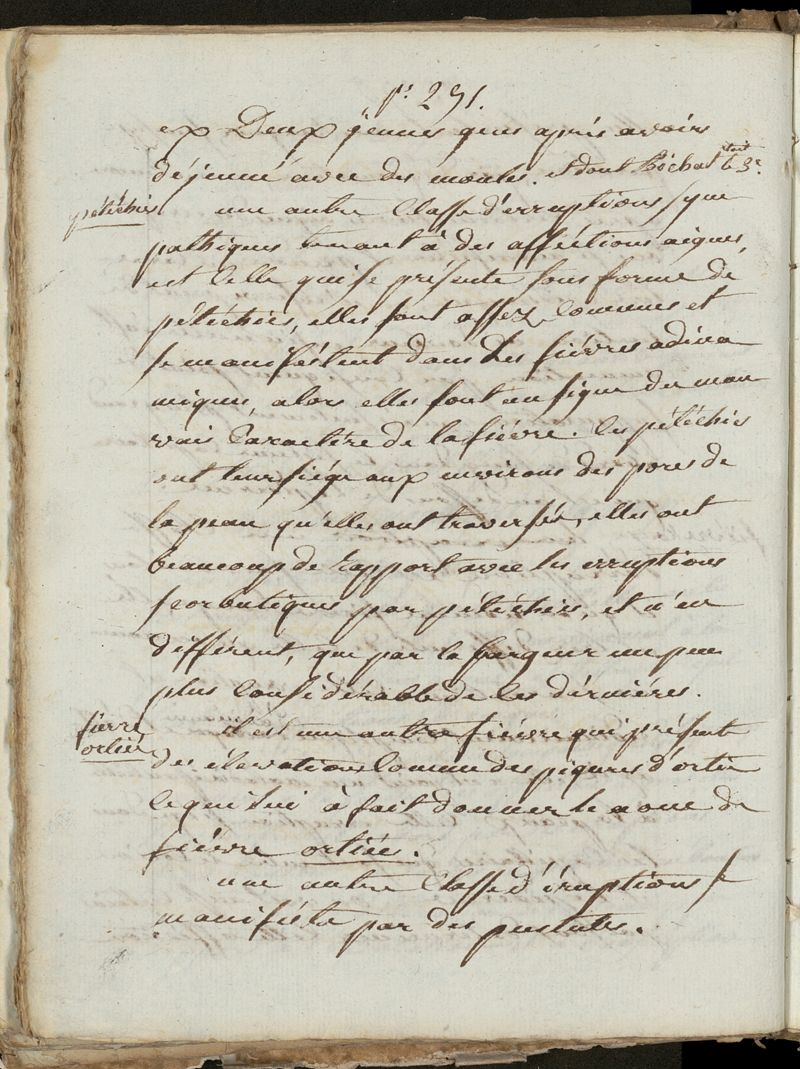 p. 291.
ex Deux jeunes gens après avoirs
déjeunés avec des moules. et dont Bichat était le 3e.
pétéchies
une autre Classe d'erruptions sym
pathiques tenant à des affections aigues,
est Celle qui se présente sous forme de
pétéchies, elles sont assez Communes et
se manifestent dans Les fiévres adina
miques, alors elles sont un signe du mau
vais Caractére de la fiévre. Ces pétéchies
ont leur siége aux environs des pores de
la peau qu'elles ont traversée, elles ont
beaucoup de rapport avec les erruptions
scorbutiques par pétéchies, et n'en
différent, que par la largeur un peu
plus Considérable de Ces dérniéres.
fievre
ortiée
il est une autre fiévre qui présente
des élevations Comme des piqures d'ortie
Ce qui lui à fait donner le nom de
fiévre ortiée.
une autre Classe d'éruptions se
manifeste par des pustules.